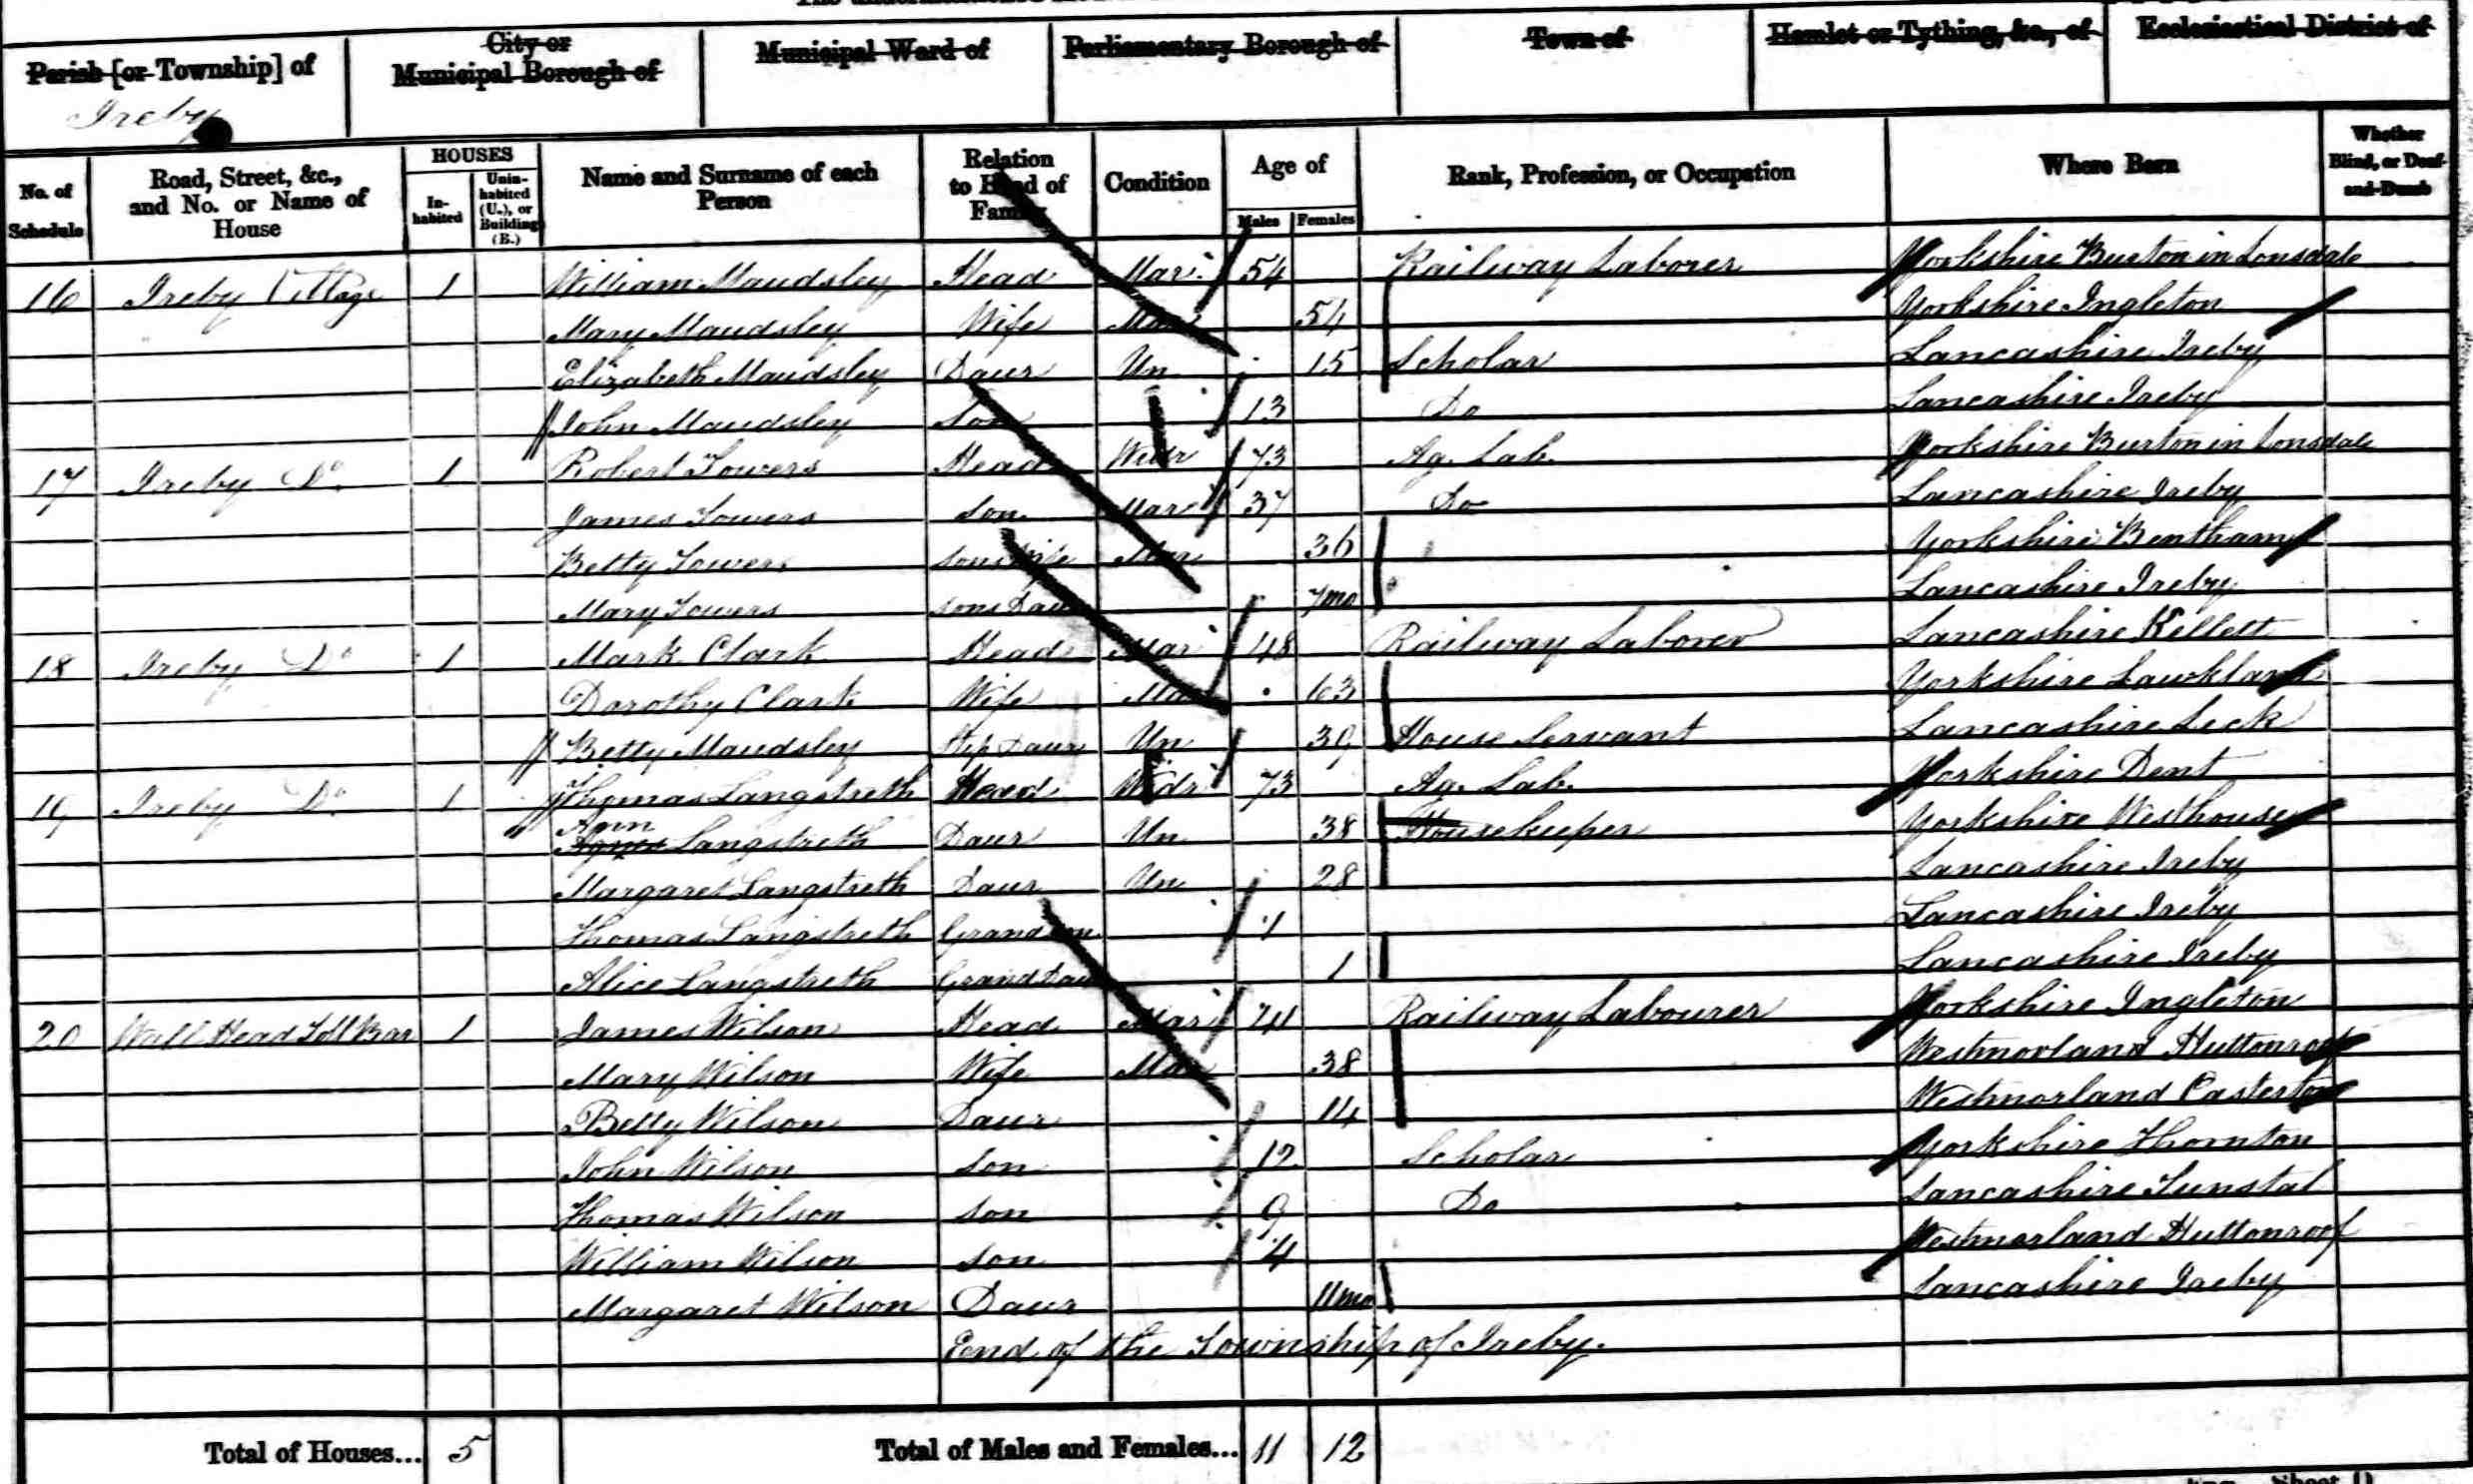 Parish [or Township] of
Ireby
City or
Municipal Borough of
Municipal Ward of
Parliamentary Borough of
Town of
Hamlet or Tything, &c., of
Ecclesiastical District of
No. of Schedule
Road, Street, &c., and No. or Name of House
HOUSES
In-habited
Unin-habited (U.), or Building (B.)
Name and Surname of each Person
Relation to Head of Family
Condition
Age of
Males
Females
Rank, Profession, or Occupation
Where Born
Whether Blind, or Deaf-and-Dumb
16 Ireby Village 1 William Maudsley Head Mar. 54 Railway Laborer Yorkshire Burton in Lonsdale
Mary Maudsley Wife Mar 54 Yorkshire Ingleton
Elizabeth Maudsley Daur Un 15 Scholar Lancashire Ireby
John Maudsley Son 13 Do Lancashire Ireby
17 Ireby Do. 1 Robert Towers Head Widr 73 Ag. Lab. Yorkshire Burton in Lonsdale
James Towers Son Mar 37 Do Lancashire Ireby
Betty Towers Sons Wife Mar 36 Yorkshire Bentham
Mary Towers Sons Daur 7mo Lancashire Ireby
18 Ireby Do 1 Mark Clark Head Mar 48 Railway Laborer Lancashire Kellett
Dorothy Clark Wife Mar 63 Yorkshire Lawkland
Betty Maudsley Step Daur Un 39 House Servant Lancashire Leck
19 Ireby Do 1 Thomas Langstreth Head Widr 73 Ag. Lab. Yorkshire Dent
Ann
Agnes Langstreth Daur Un 38 Housekeeper Yorkshire Westhouse
Margaret Langstreth Daur Un 28 Lancashire Ireby
Thomas Langstreth Grand Son Lancashire Ireby
Alice Langstreth Grand Daur 1 Lancashire Ireby
20 Wall Head Toll Bar 1 James Wilson Head Mar 41 Railway Labourer Yorkshire Ingleton
Mary Wilson Wife Mar 38 Westmorland Huttonroof
Betty Wilson Daur 14 Westmorland Casterton
John Wilson Son 12 Scholar Yorkshire Thornton
Thomas Wilson Son 9 Do Lancashire Tunstal
William Wilson Son 4 Westmorland Huttonroof
Margaret Wilson Daur 11mo Lancashire Ireby
End of the Township of Ireby.
Total of Houses... 5
Total of Males and Females... 11 12